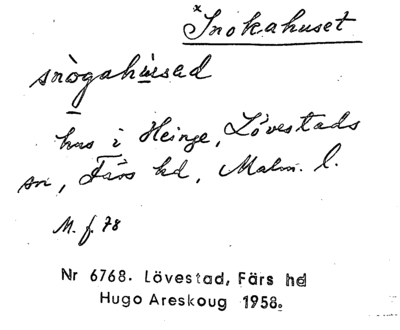 *Snokahuset
snògahùsad
hus i Heinge, Lövestads
sn, Färs hd, Malm. l.
M. f. 78
Nr 6768. Lövestad, Färs hd
Hugo Areskoug 1958.